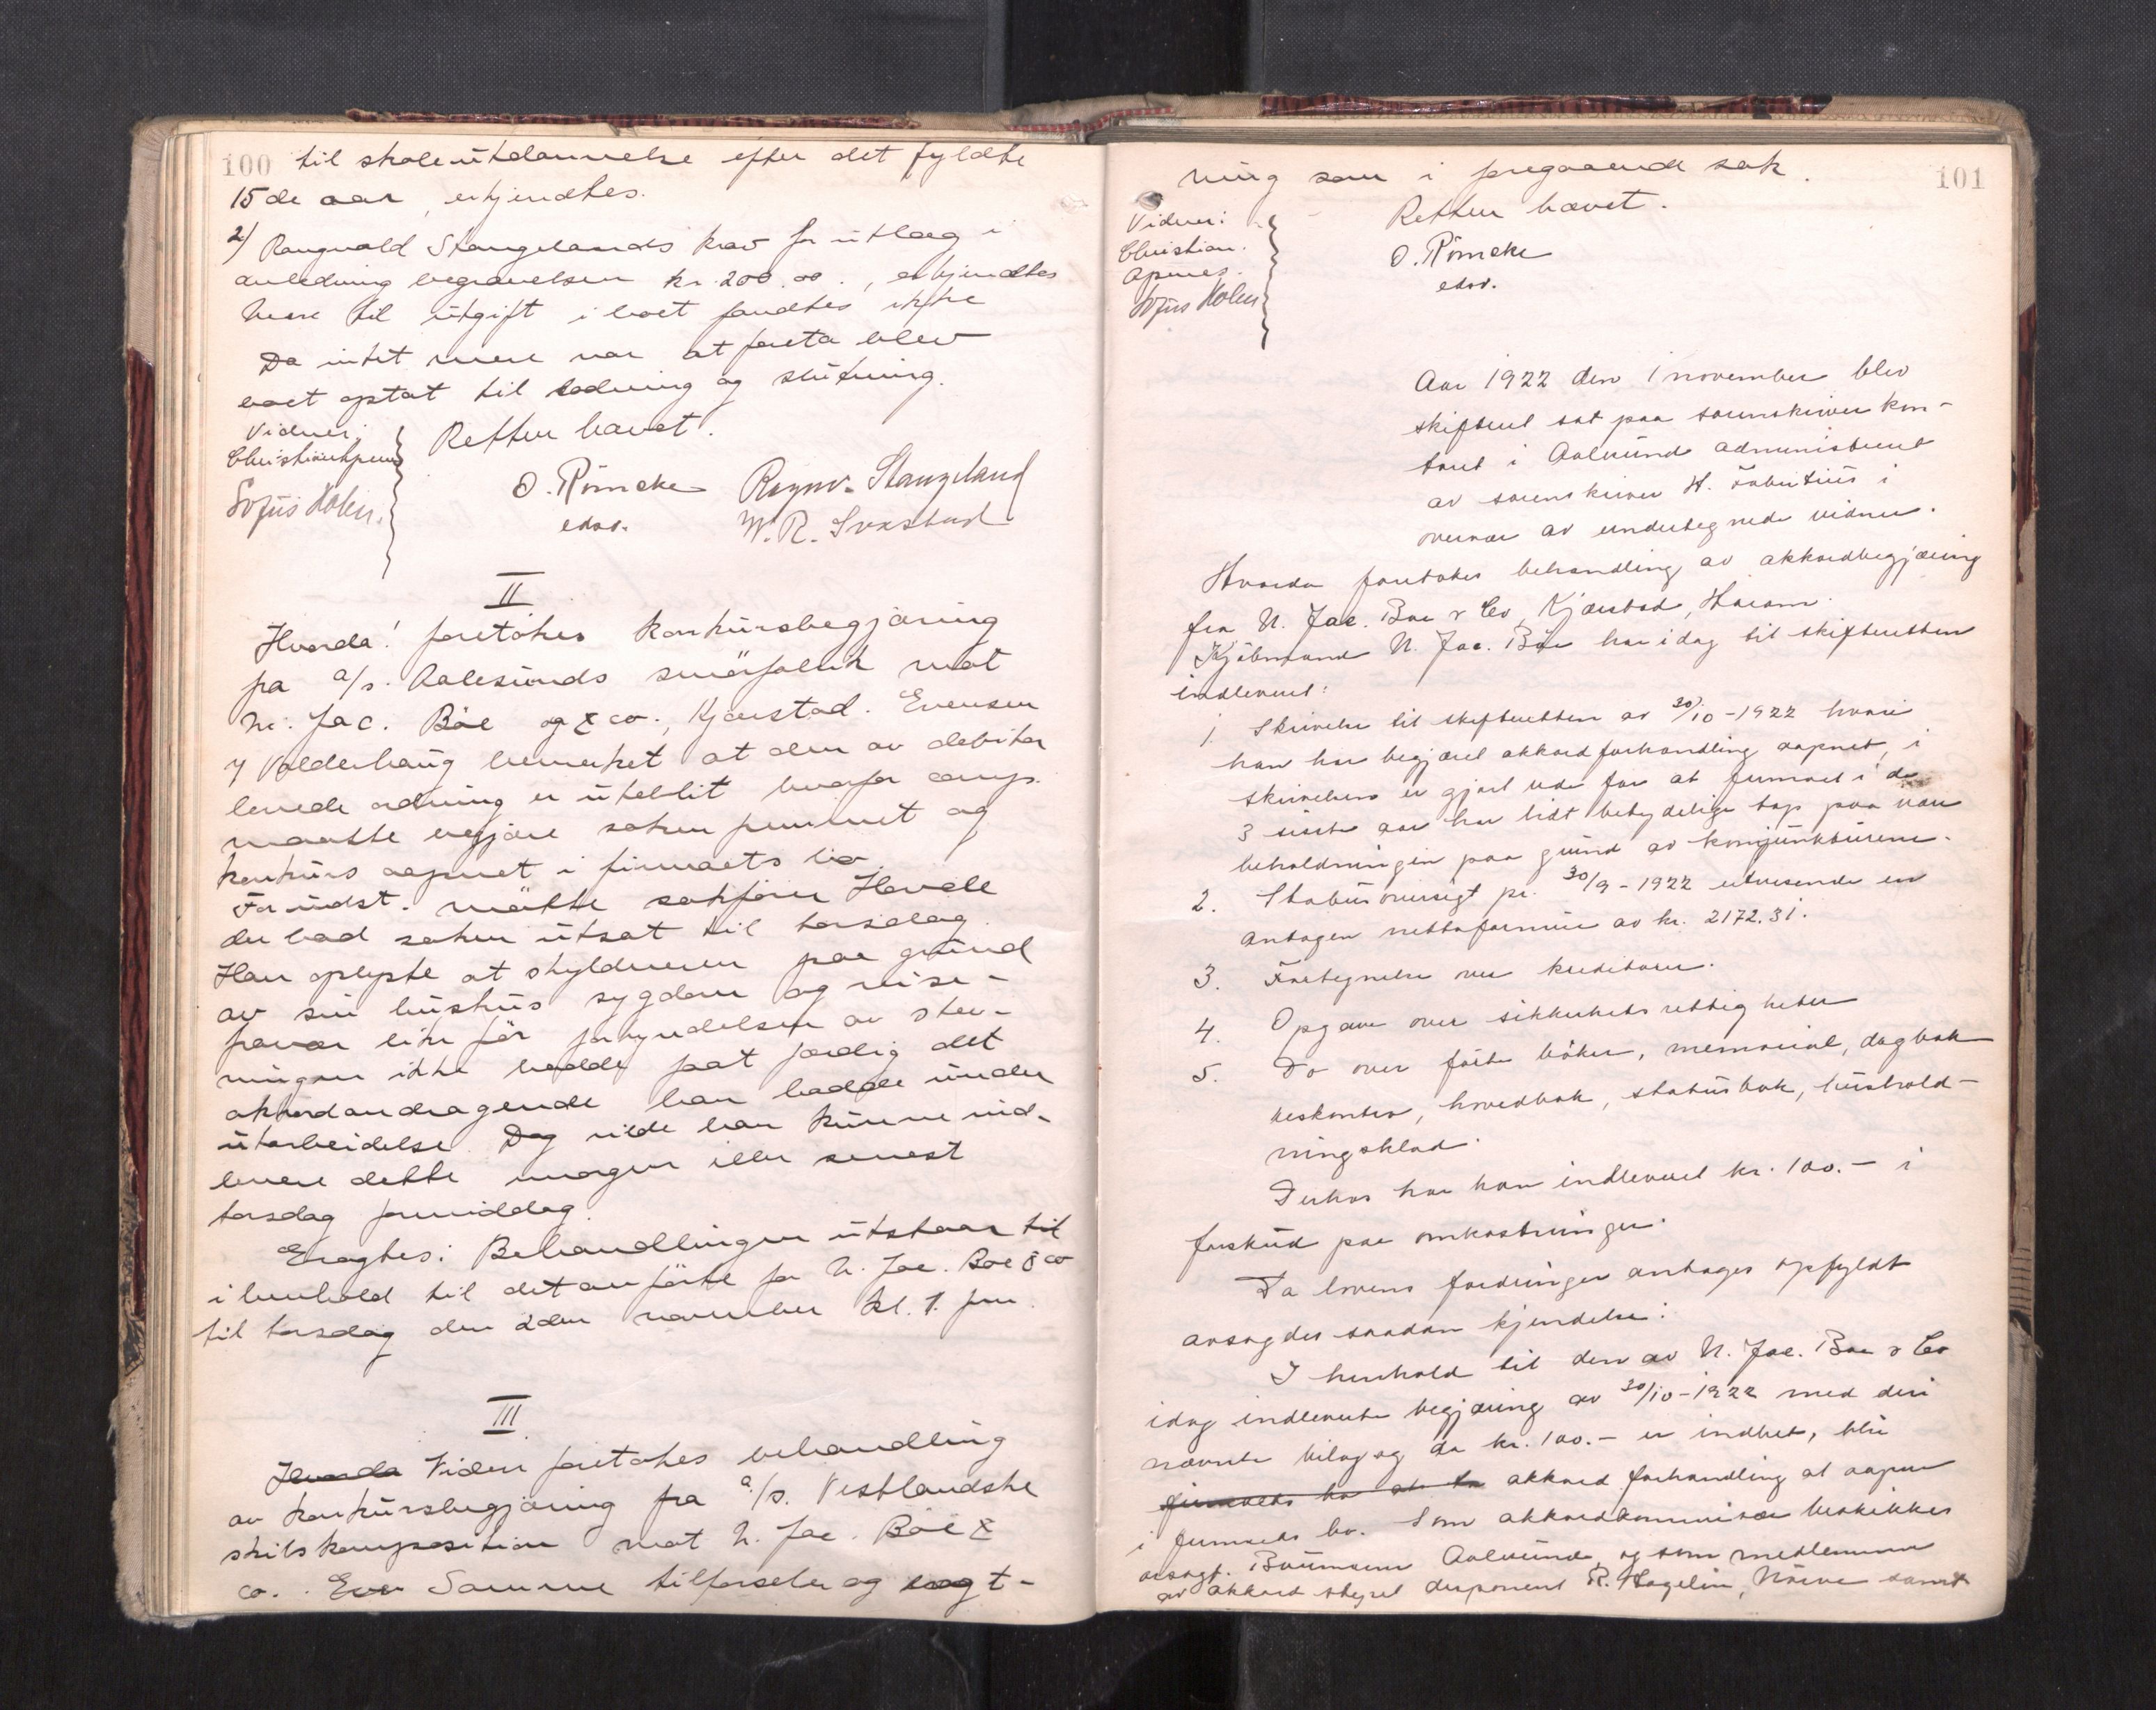 100 til skoleutdannelse efter det fyldte
15de aar, erkjendtes.
2) Rangvald Stangelands krav for utlæg i
anledning begravelsen kr. 200.00., erkjendtes
Mere til utgift i boet fandtes ikke
Da intet mere var at foreta blev
boet optat til lodning og slutning.
Vidner: Retten hævet.
Christian Apenes
Sofus Holen.
O. Römcke Ragnv. Stangeland
edsv. W. R. Svastad
II
Hvorda! foretokes konkursbegjæring
fra a/s. Aalesunds smörfabrik mot
N. Jac. Böe og & co., Kjærstad. Evensen
Valderhaug bemerket at den av debitor
lovede ordning er uteblit hvorfor comp.
maatte begjære saken fremmet og
konkurs aapnet i firmaets bo.
For indst. mötte sakförer Hevdle
der bad saken utsat til torsdag.
Han oplyste at skyldneren paa grund
av sin hustrus sygdom og reise-
fravær like før forkyndelsen av stev-
ningen ikke hadde faat færdig det
akkordandragende han hadde under
utarbeidelse. Dog vilde han kunne ind-
levere dette imorgen eller senest
torsdag formiddag.
Eragtes: Behandlingen utstaar til
i henhold til det anförte for N. Jac. Böe & co
til torsdag den 2den november kl. 1. fm.
III
Hvorda Videre foretokes behandling
av konkursbegjæring fra a/s. Vestlandske
skibskomposition mot N. Jac. Böe &
co. Even Samme tilförsler og eragt-
101
ning som i foregaaende sak.
Vidner: Retten hævet.
Christian.
Apenes.
Sofus Holen
O. Römcke
edsv.
Aar 1922 den 1 november blev
skifteret sat paa sorenskriverkon-
toret i Aalesund administreret
av sorenskriver H. Fabritius i
overvær av undertegnede vidner.
Hvorda foretokes behandling av akkordbegjæring
fra N. Jac. Böe & Co, Kjærstad, Haram.
Kjöbmand N. Jac. Böe har idag til skifteretten
indleveret:
1. Skrivelse til skifteretten av 30/10-1922 hvori
han har begjæret akkordforhandling aapnet, i
skrivelsen er gjort rede for at firmaet i de
3 siste aar har lidt betydelige tap paa vare
beholdningen paa grund av konjunkturene.
2. Statusoversigt pr. 30/9-1922 utvisende en
antagen nettoformue av kr. 2172.31.
3. Fortegnelse over kreditorer.
4. Opgave over sikkerhetsrettigheter
5. Do over förte böker, memorial, dagbok
reskontro, hovedbok, statusbok, hushold-
ningsklad.
Derhos har han indleveret kr. 100.- i
forskud paa omkostninger.
Da lovens fordringer antages opfyldt
avsagdes saadan kjendelse:
I henhold til den av N. Jac. Böe & Co
idag indleverte begjæring av 30/10-1922 med deri
nævnte bilag og da kr. 100.- er indbet, blir
firmaets bo at ta akkord forhandling at aapne
i firmaets bo. Som akkordkommissær beskikkes
ovsagf. Aalesund, og som medlemmer
av akkord styret disponent R. Hagelin, Nörve samt